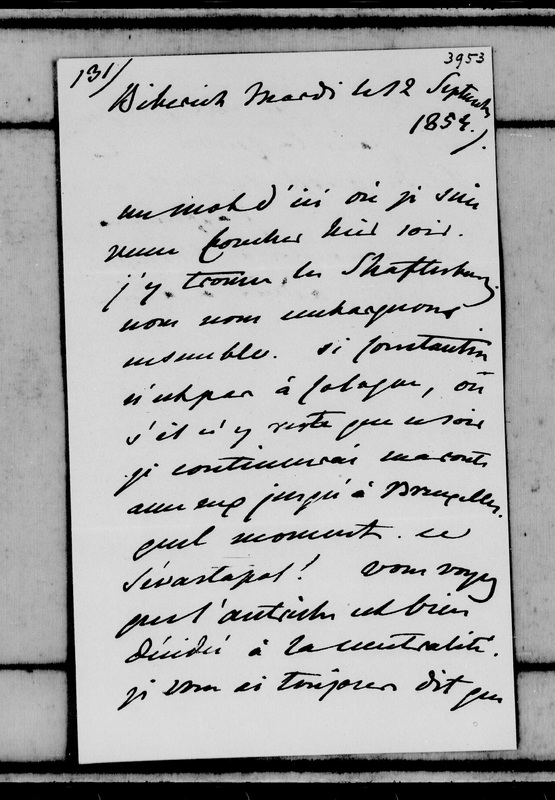 131/
3953
Biberich Mardi le 12 Septembre
1854.
un mot d'ici où je suis
venue coucher hier soir.
j'y trouve les Shaftesbury
nous nous embarquons
ensemble. si Constantin
n'est pas à Cologne, où
s'il n'y reste que ce soir
je continuerai ma route
avec eux jusqu'à Bruxelles.
quel moment. ce
Sévastopol! vous voyez
que l'autriche est bien
décidée à la neutralité.
je vous ai toujours dit que